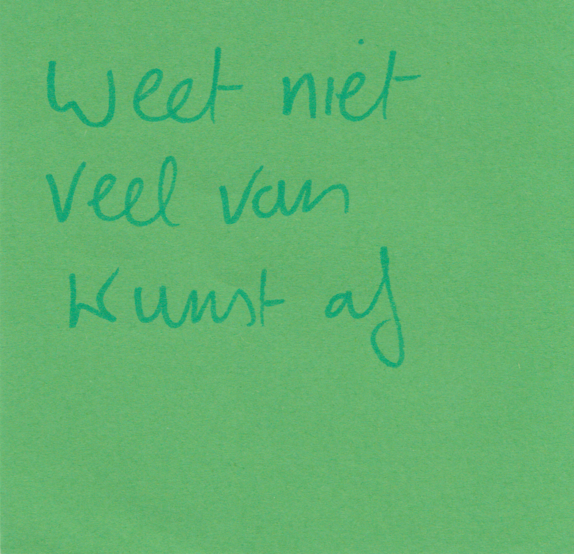 Weet niet
veel van
kunst af